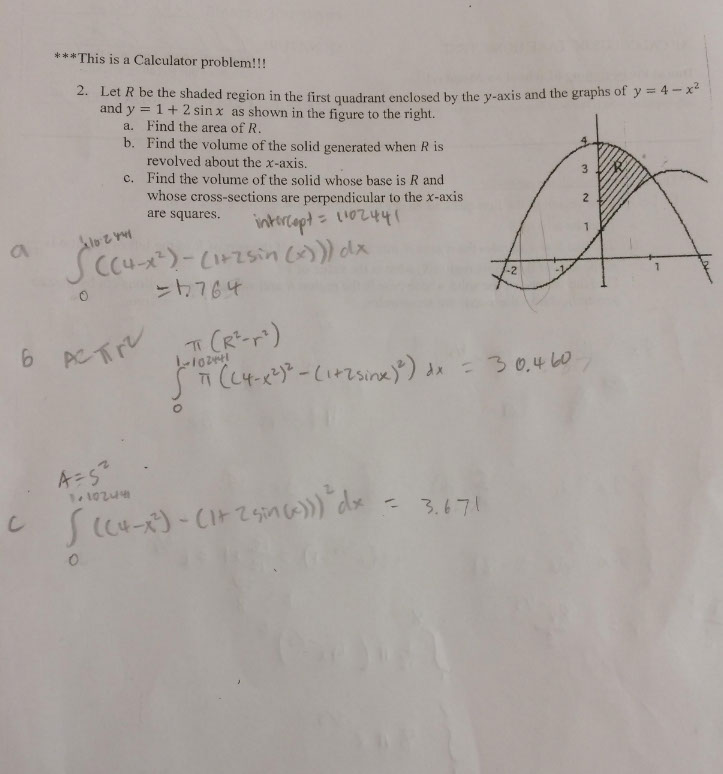 ***This is a Calculator problem!!!
2. Let R be the shaded region in the first quadrant enclosed by the y-axis and the graphs of y = 4 − x²
and y = 1 + 2 sin x as shown in the figure to the right.
a. Find the area of R.
b. Find the volume of the solid generated when R is
revolved about the x-axis.
c. Find the volume of the solid whose base is R and
whose cross-sections are perpendicular to the x-axis
are squares.
4
3
R
2
1
-2
-1
1
2
intercept = 1.102441
a
1.102441
∫((4-x²)-(1+2sin(x)))dx
0
= 1.764
b
π(R²-r²)
1.102441
∫π((4-x²)²-(1+2sinx)²) dx = 30.460
0
A=S²
1.102441
c ∫((4-x²)-(1+2sin(x)))² dx = 3.671
0